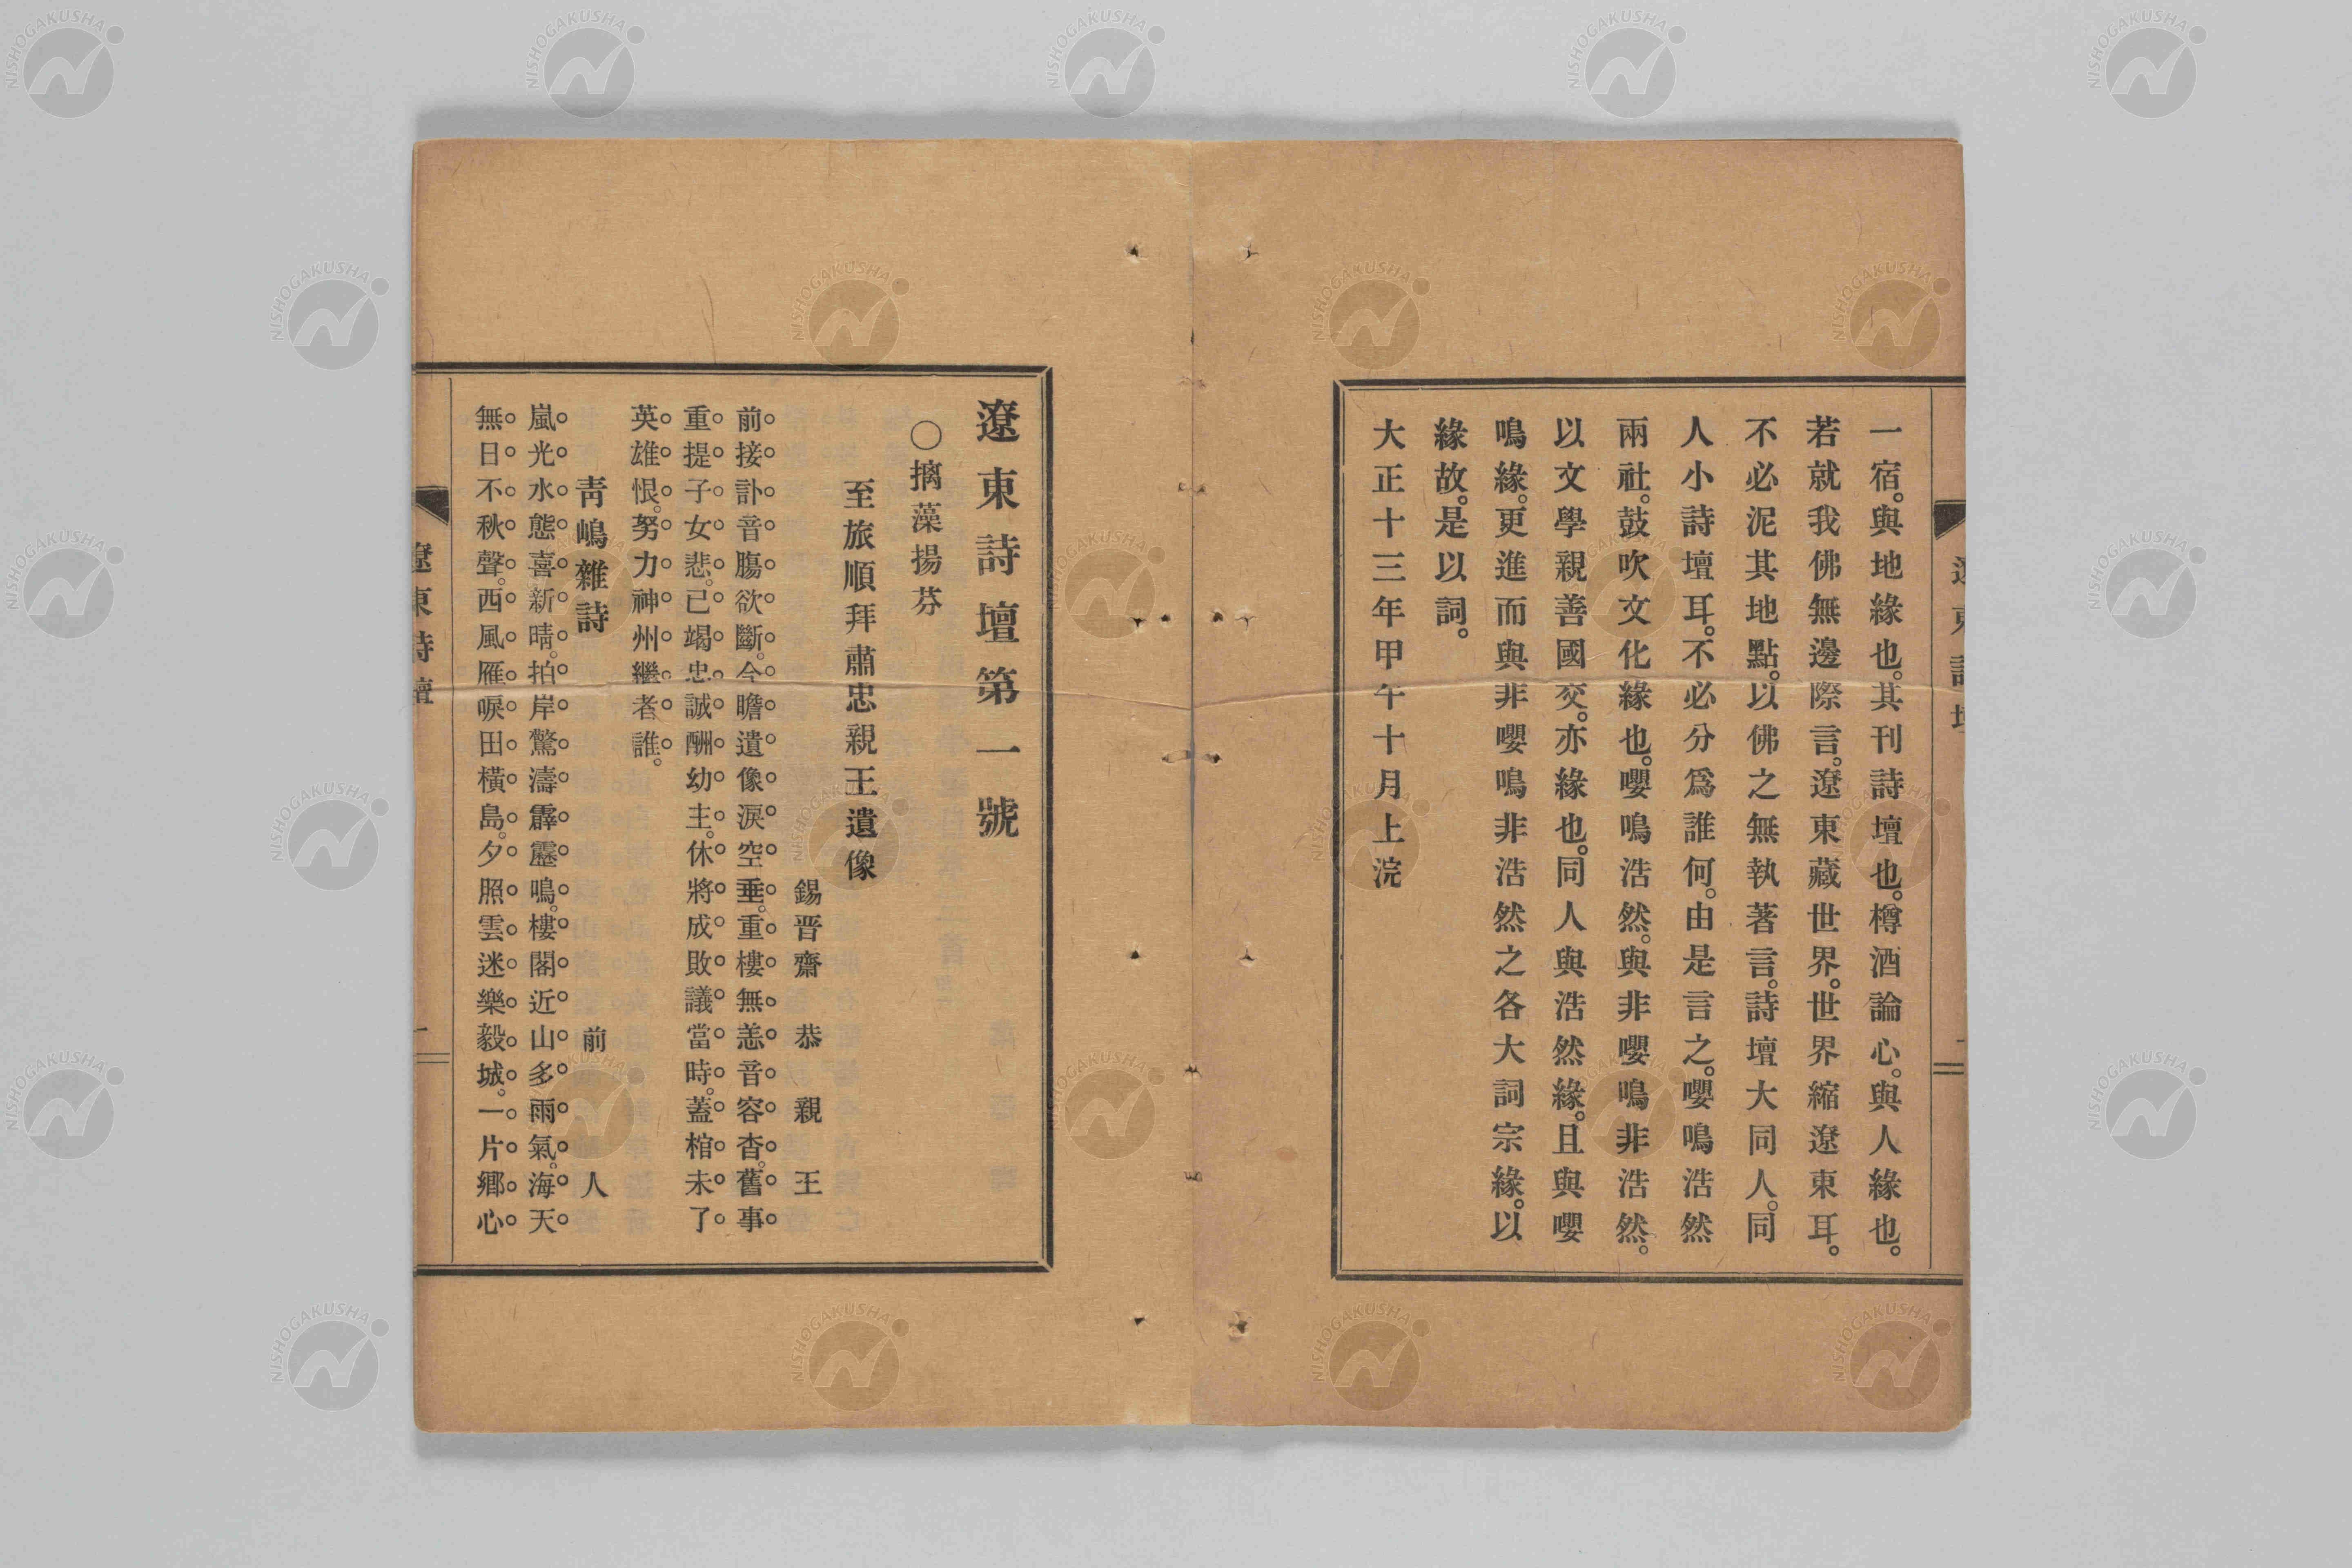 一宿。與地緣也。其刊詩壇也。樽酒論心。與人緣也。
若就我佛無邊際言。遼東藏世界。世界縮遼東耳。
不必泥其地點。以佛之無執著言。詩壇大同人。同
人小詩壇耳。不必分爲誰何。由是言之。嚶鳴浩然
兩社。鼓吹文化緣也。嚶鳴浩然。與非嚶鳴非浩然。
以文學親善國交。亦緣也。同人與浩然緣。且與嚶
鳴緣。更進而與非嚶鳴非浩然之各大詞宗緣。以
緣故。是以詞。
大正十三年甲午十月上浣
遼東詩壇第一號
〇摛藻揚芬
至旅順拜肅忠親王遺像
錫晋齋恭親王
前接訃音腸欲斷。今瞻遺像淚空垂。重樓無恙音容杳。舊事
重提子女悲。己竭忠誠酬幼主。休將成敗議當時。蓋棺未了
英雄恨。努力神州繼者誰。
靑嶋雜詩
前人
嵐光水態喜新晴。拍岸驚濤霹靂鳴。樓閣近山多雨氣。海天
無日不秋聲。西風雁唳田橫島。夕照雲迷樂毅城。一片鄕心
遼東詩壇
NISHOGAKUSHA